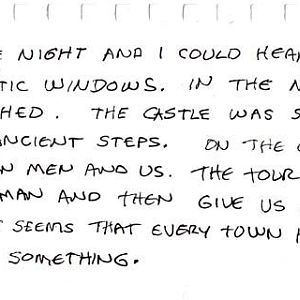 NIGHT AND I COULD HEAR
TIC WINDOWS. IN THE
HED. THE CASTLE WAS S
ANCIENT STEPS. ON THE
N MEN AND US. THE TOUR
MAN AND THEN GIVE US
SEEMS THAT EVERY TOWN
SOMETHING.